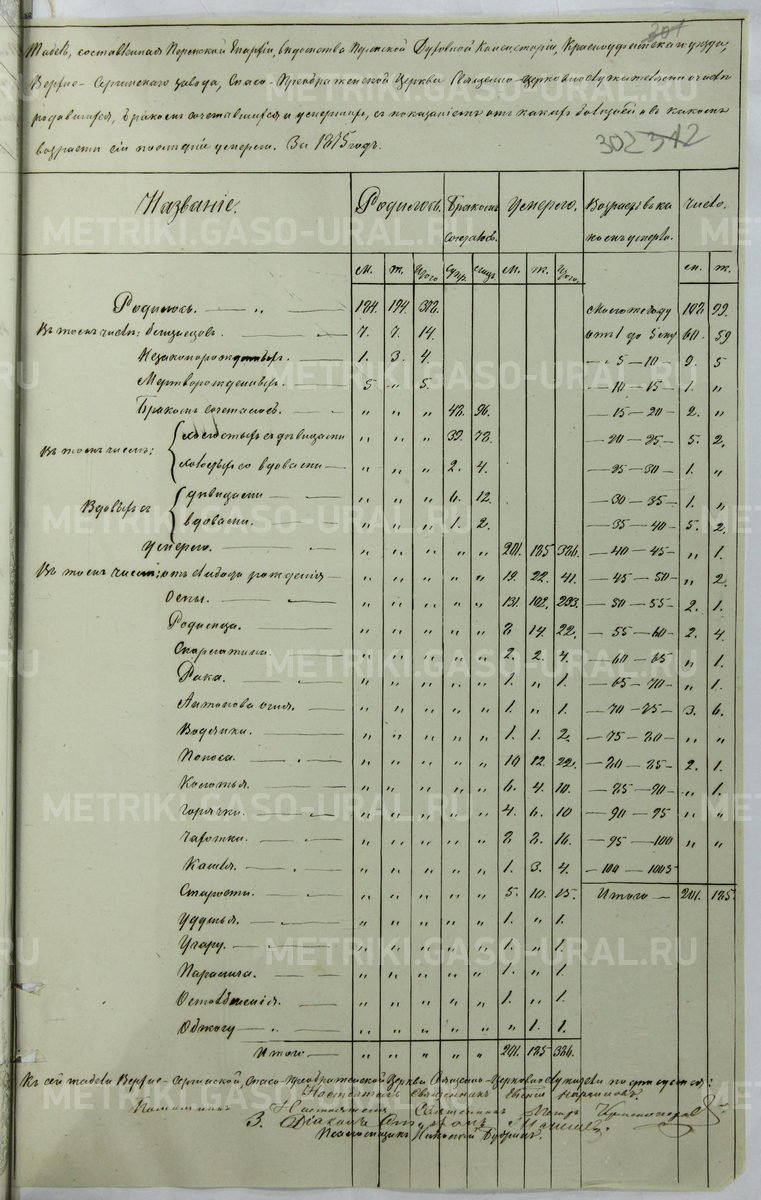 301
Табель, составленная Пермской Епархіи, ведомства Духовной Консисторіи, Красноуфимскаго уезда,
Верхне-Сергинскаго завода, Спасо-Преображенской Церкви Священно-Церковнослужителями о
родившихся, бракомъ сочетавшихся и умершихъ, съ показаніемъ отъ какихъ болезней и въ какомъ
302 312
возрасте сіи последніе умерли. За 1875 годъ.
Названіе. Родилось. Бракомъ сочеталось. Умерло. Возрастъ въ какомъ умерли. Число.
м. ж. Итого м. ж. Итого м. ж.
Родилось. — „ — 194. 194. 388. Менее году 102 99.
Въ томъ числе: близнецовъ. — 7. 7. 14. отъ 1 до 5 60. 59
Незаконорожденныхъ. — 1. 3. 4. — 5 — 10 — 9. 5
Мертворожденныхъ. — 5 „ 5. — 10 — 15 — 1. „
Бракомъ сочеталось. — „ „ „ 48. 96. — 15 — 20 — 2. „
Въ томъ числе: холостыхъ съ девицами „ „ „ 39. 78. — 20 — 25 — 5. 2.
холостыхъ со вдовами — „ „ „ 2. 4. — 25 — 30 — 1. „
Вдовыхъ съ девицами — „ „ „ 6. 12. — 30 — 35 — 1. „
вдовами. — „ „ „ 1. 2. — 35 — 40 — 5. 2
Умерло. — „ „ „ „ „ 201. 185 386. — 40 — 45 — „ 1.
Въ томъ числе: отъ слабаго рожденія — „ „ „ „ „ 19. 22. 41. — 45 — 50 — „ 2
Оспы. — „ „ „ „ „ 131. 102. 233. — 50 — 55 — 2. 1.
Родимца. — „ „ „ „ „ 8 14. 22. — 55 — 60 — 2. 4
Скарлатина. — „ „ „ „ „ 2. 2. 4. — 60 — 65 „ 1.
Рака. — „ „ „ „ „ 1. „ 1. — 65 — 70 — „ 1.
Антонова огня. — „ „ „ „ „ 1. „ 1. — 70 — 75 — 3. 6.
Водянки. — „ „ „ „ „ 1. 1. 2. — 75 — 80 — „ „
Поноса. — „ „ „ „ „ 10 12. 22. — 80 — 85 — 2. 1.
Колотья. — „ „ „ „ „ 6. 4. 10. — 85 — 90 — „ 1.
Горячки. — „ „ „ „ „ 4. 6. 10 — 90 — 95 „ „
Чахотки. — „ „ „ „ „ 8 8. 16. — 95 — 100 „ „
Кашля. — „ „ „ „ „ 1. 3. 4. — 100 — 1005
Старости. — „ „ „ „ „ 5. 10. 15. Итого — 201. 185.
Удушья. — „ „ „ „ „ 1. „ 1.
Угару. — „ „ „ „ „ 1. „ 1.
Паралича. — „ „ „ „ „ 1. „ 1.
„ „ „ „ „ 1. „ 1.
Обжогу — „ „ „ „ „ „ 1. 1.
Итого — „ „ „ „ „ 201. 185 386.
Къ сей табели Верхне-Сергинской, Спасо-Преображенской Церкви Священно-Церковнослужители подписуются:
Настоятель Священникъ
Помощникъ Настоятеля Священникъ Петръ
Діаконъ
Псаломщикъ Николай
METRIKI.GASO-URAL.RU